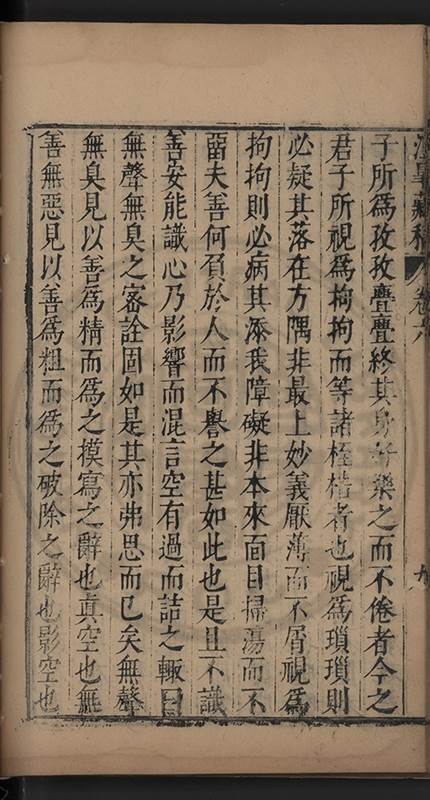 涇皋藏稿 卷六 九
子所為孜孜亹亹終其身好樂之而不倦者今之
君子所視為拘拘而等諸桎梏者也視為瑣瑣則
必疑其落在方隅非最上妙義厭薄而不屑視為
拘拘則必病其添我障礙非本來面目掃蕩而不
留夫善何負於人而不譽之甚如此也是且不識
善安能識心乃影響而混言空有過而詰之輒曰
無聲無臭之密詮固如是其亦弗思而已矣無聲
無臭見以善為精而為之摸寫之辭也真空也無
善無惡見以善為粗而為之破除之辭也影空也